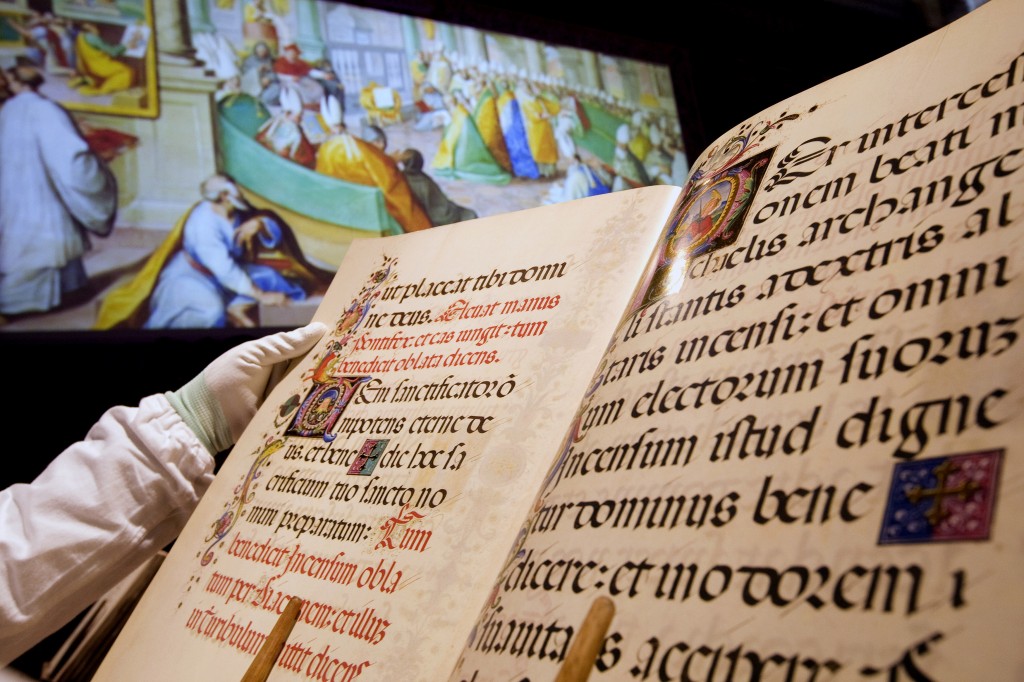 ut placeat tibi domi
ne deus. Elevat manus
pontifex et eas iungit: tum
benedicit oblata dicens.
Uein sanctificatorō
nipotens eterne de
us. et bene✠dic hoc sa
crificium tuo sancto no
mini preparatum: Tum
benedicit Incensum obla
tum per Diaconem: et illuz
in thuribulum mittit dicens
Per intercess
onem beati m
ichaelis archange
li stantis a dextris al
taris incensi: et omni
um electorum suoruz
Incensum istud digne
tur dominus bene✠
dicere: et in odorem
suauitatis accipere